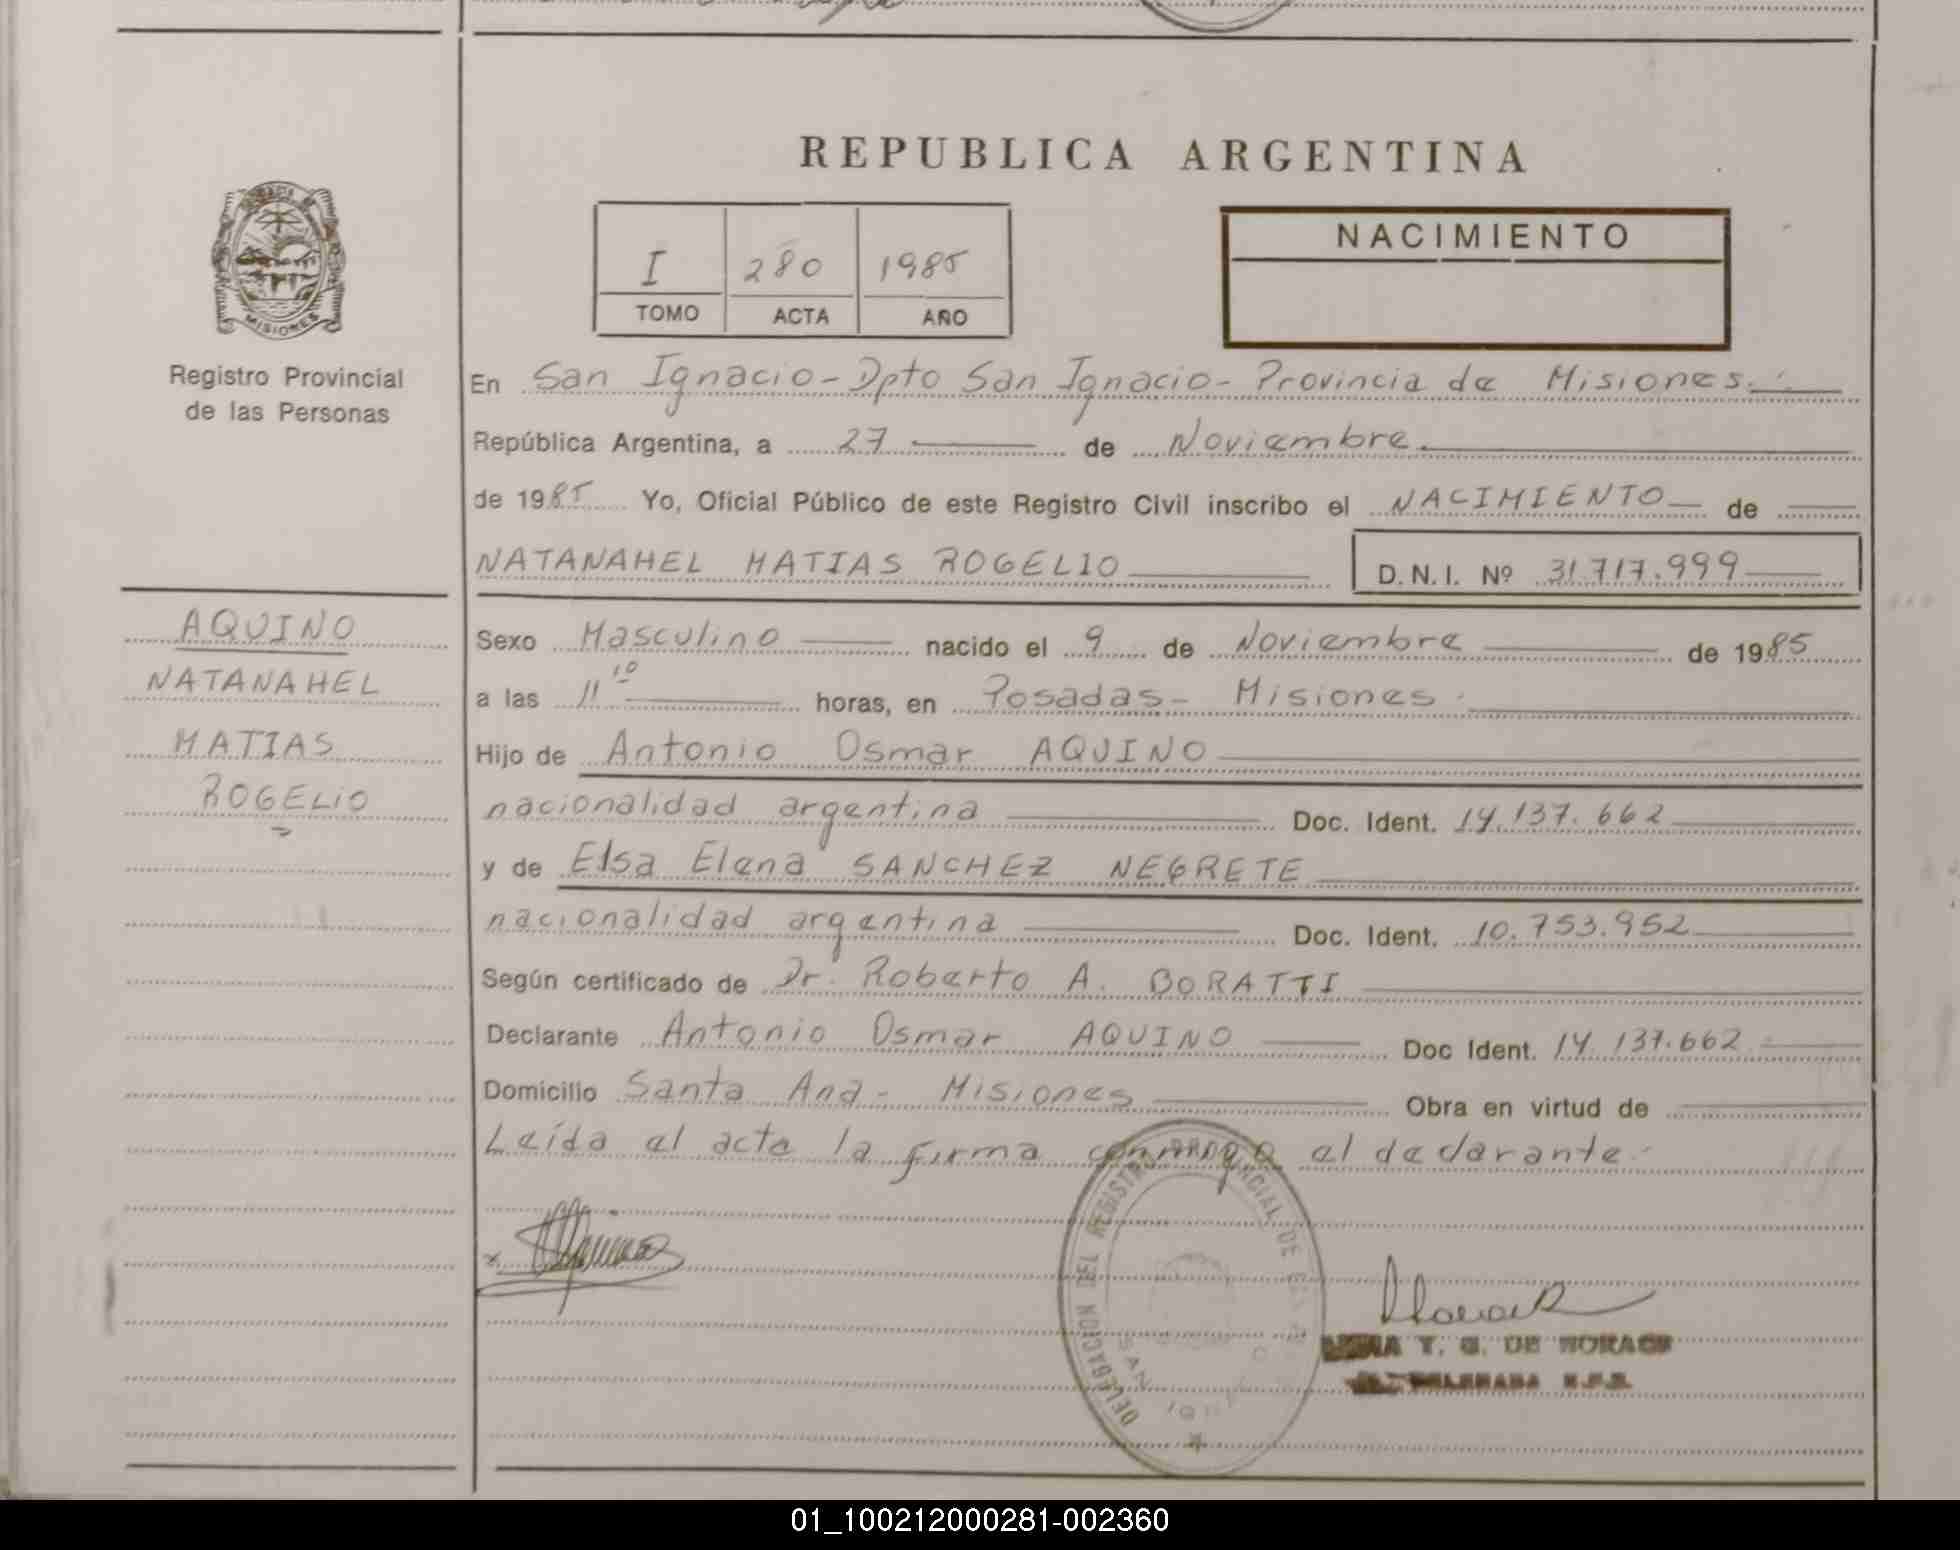 REPUBLICA ARGENTINA
I 280 1985
TOMO ACTA AÑO
NACIMIENTO
MISIONES
Registro Provincial
de las Personas
En San Ignacio - Dpto San Ignacio - Provincia de Misiones.
República Argentina, a 27 de Noviembre
de 1985 Yo, Oficial Público de este Registro Civil inscribo el NACIMIENTO de
NATANAHEL MATIAS ROGELIO D.N.I. Nº 31.717.999
AQUINO
NATANAHEL
MATIAS
ROGELIO
Sexo Masculino nacido el 9 de Noviembre de 1985
a las 11 10 horas, en Posadas - Misiones.
Hijo de Antonio Osmar AQUINO
nacionalidad argentina Doc. Ident. 14.137.662
y de Elsa Elena SANCHEZ NEGRETE
nacionalidad argentina Doc. Ident. 10.753.952
Según certificado de Dr. Roberto A. BORATTI
Declarante Antonio Osmar AQUINO Doc Ident. 14.137.662
Domicilio Santa Ana - Misiones Obra en virtud de
Leída el acta la firma conmigo el declarante.
DELEGACION DEL REGISTRO PROVINCIAL DE
SAN
T. G. DE HORACK
01_100212000281-002360